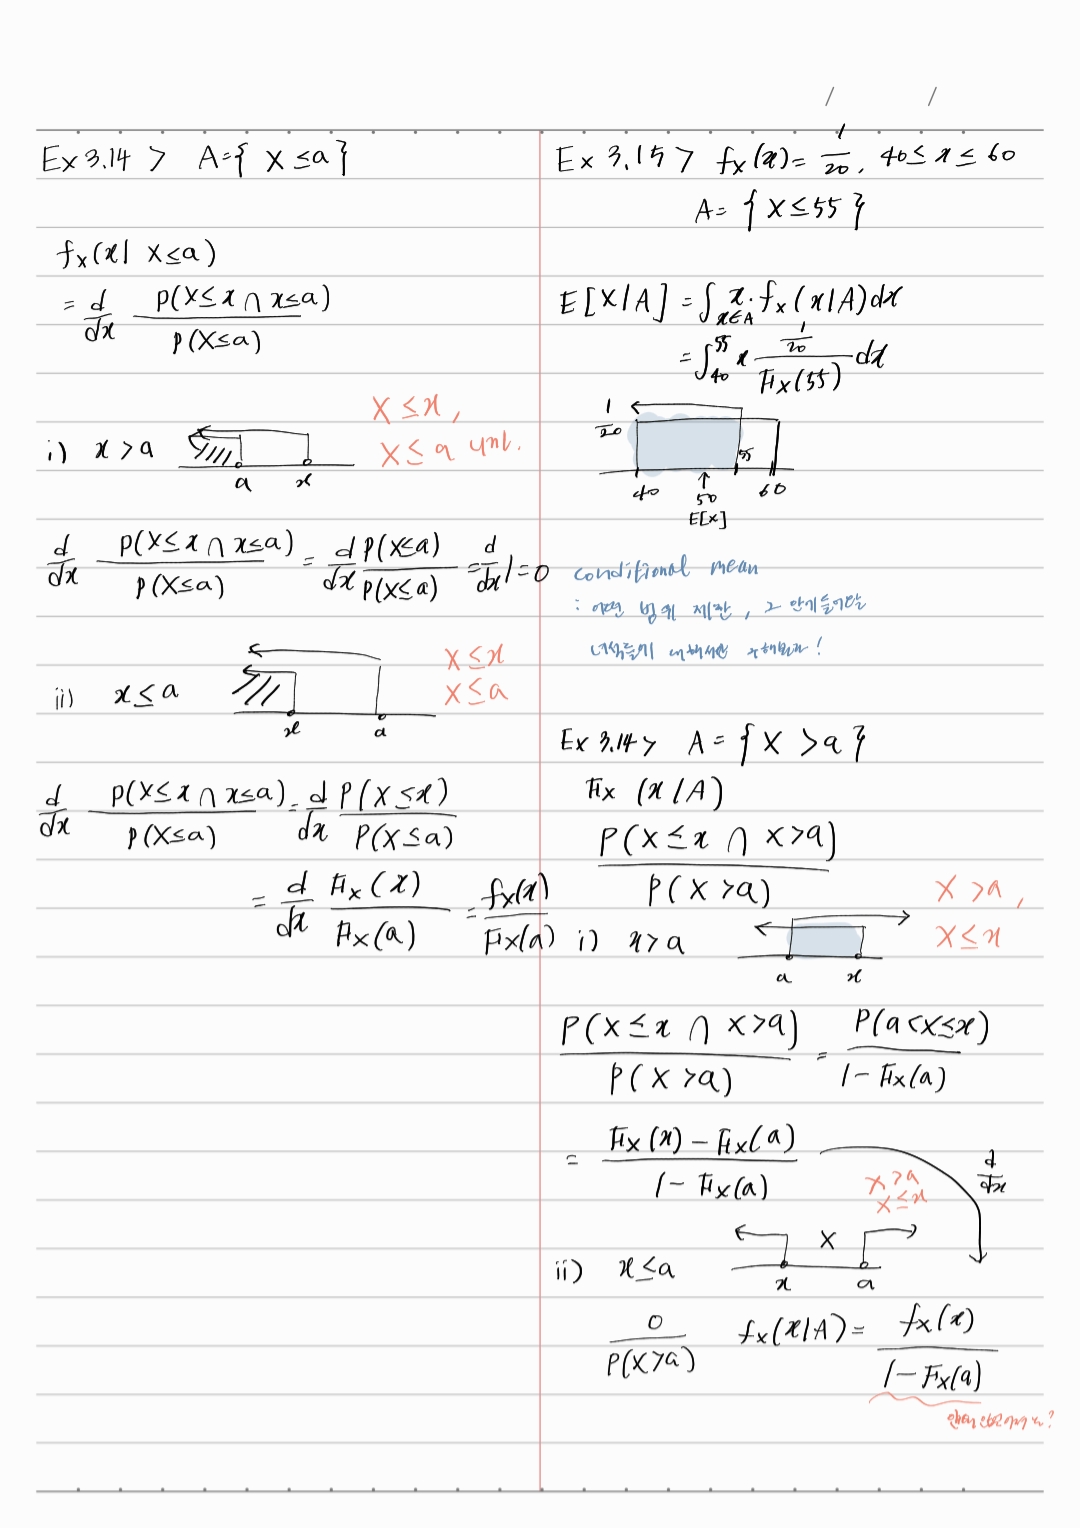 Ex 3.14 > A={ X ≤a }
fx(x| X≤a)
= d/dx P(X≤x ∩ X≤a) / P(X≤a)
i) x > a
a x
X ≤ x,
X ≤ a
d/dx P(X≤x ∩ X≤a) / P(X≤a) = d/dx P(X≤a) / P(X≤a) = d/dx 1 = 0
ii) x ≤ a
x a
X ≤ x
X ≤ a
d/dx P(X≤x ∩ X≤a) / P(X≤a) = d/dx P(X ≤x) / P(X≤a)
= d/dx Fx(x) / Fx(a) = fx(x) / Fx(a)
Ex 3.15 > fx(x)= 1/20, 40≤ x ≤ 60
A= { X ≤ 55 }
E[X|A] = ∫x∈A x·fx(x|A)dx
= ∫40^55 x 1/20 / Fx(55) dx
1/20
40 50 55 60
E[x]
conditional mean
: 어떤 범위 제한, 그 안에
Ex 3.14> A = { X > a }
Fx (x|A)
P(X ≤ x ∩ X>a) / P(X >a)
i) x > a
a x
X > a,
X ≤ x
P(X ≤ x ∩ X>a) / P(X >a) = P(a<X≤x) / 1- Fx(a)
= Fx(x) - Fx(a) / 1 - Fx(a)
d/dx
X > a
X ≤ x
ii) x ≤ a
X
x a
0 / P(X>a) fx(x|A)= fx(x) / 1- Fx(a)